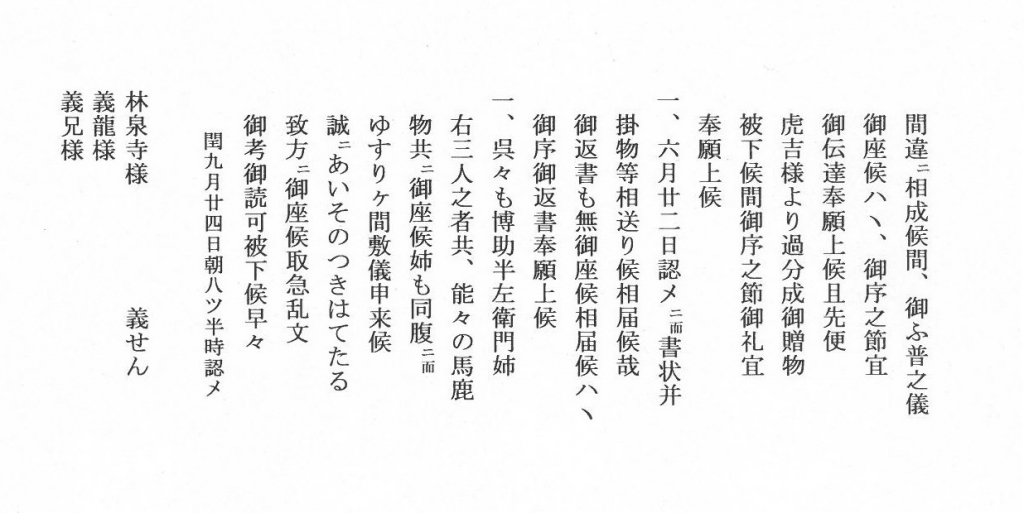 間違ニ相成候間、御ふ普之儀
御座候ハヽ、御序之節宜
御伝達奉願上候且先便
虎吉様より過分成御贈物
被下候間御序之節御礼宜
奉願上候
一、六月廿二日認メニ而書状并
掛物等相送り候相届候哉
御返書も無御座候相届候ハヽ
御序御返書奉願上候
一、呉々も博助半左衛門姉
右三人之者共、能々の馬鹿
物共ニ御座候姉も同腹ニ而
ゆすりヶ間敷儀申来候
誠ニあいそのつきはてたる
致方ニ御座候取急乱文
御考御読可被下候早々
閏九月廿四日朝八ツ半時認メ
義せん
林泉寺様
義龍様
義兄様